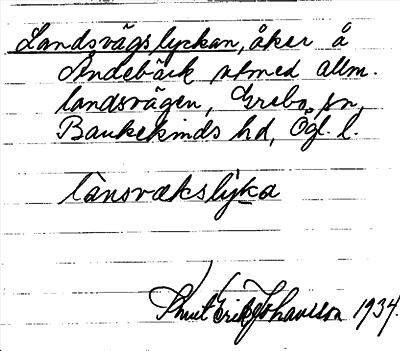 Landsvägslyckan, åker å
Sindebäck utmed allm.
landsvägen, Grebo sn,
Bankekinds hd, Ögl. l.
länsvækslyka
Knut Erik Johanson 1934.